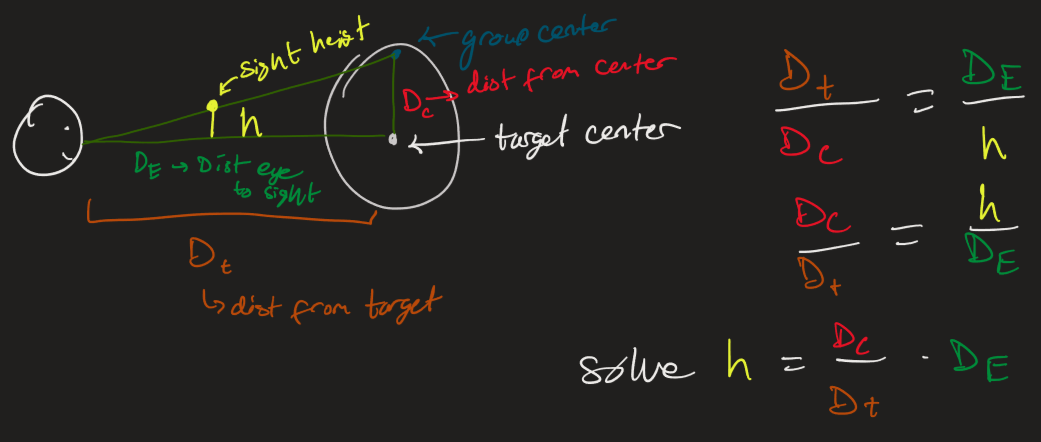 sight heist
h
← group center
Dc → dist from center
← target center
DE → Dist eye
to sight
Dt
↳ dist from target
Dt / Dc = DE / h
Dc / Dt = h / DE
solve h = Dc / Dt · DE